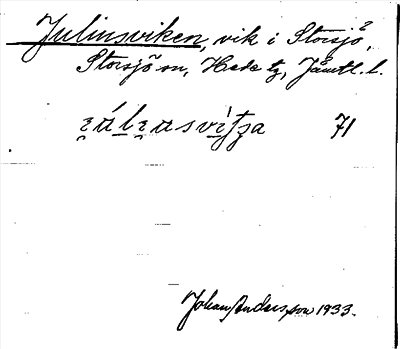 Julinsviken, vik i Storsjö,
Storsjö sn, Hede tg, Jämtl. l.
71
Johan Andersson 1933.